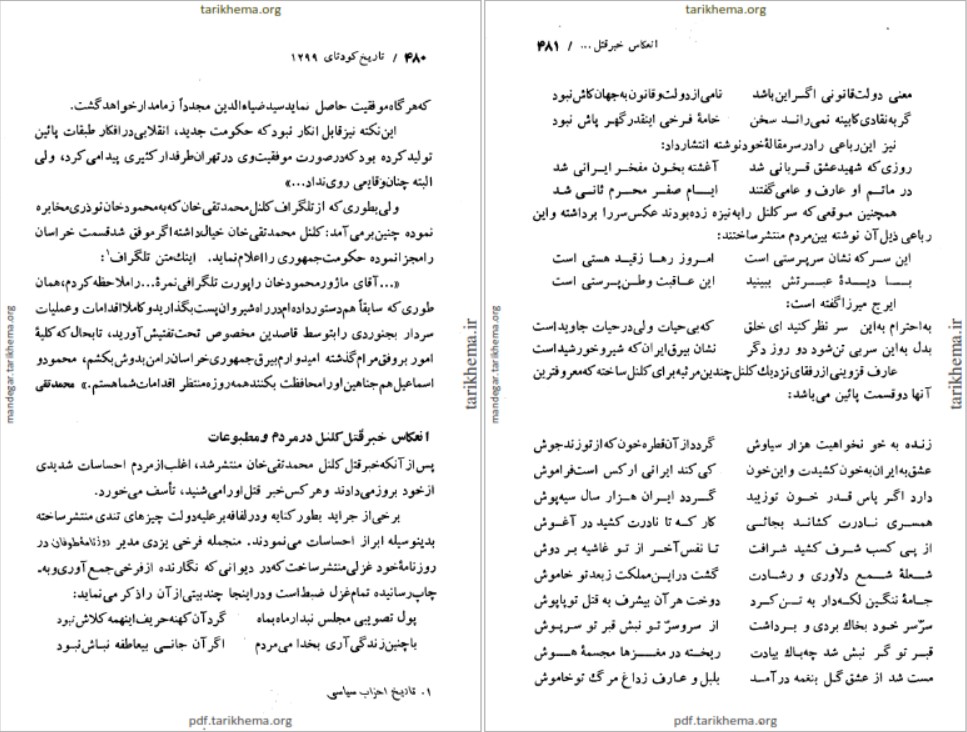 tarikhema.org
۴۸۰ / تاریخ کودتای ۱۲۹۹
که هرگاه موفقیت حاصل نماید سید ضیاءالدین مجدداً زمامدار خواهد گشت.
این نکته نیز قابل انکار نبود که حکومت جدید، انقلابی در افکار طبقات پائین
تولید کرده بود که در صورت موفقیت وی در تهران طرفدار کثیری پیدا می کرد، ولی
البته چنان وقایعی روی نداد...»
ولی بطوری که از تلگراف کلنل محمد تقی خان که به محمود خان نوذری مخابره
نموده چنین برمی آمد: کلنل محمد تقی خان خیال داشته اگر موفق شد قسمت خراسان
را مجزا نموده حکومت جمهوری را اعلام نماید. اینک متن تلگراف۱:
«... آقای ماژور محمود خان راپورت تلگرافی نمرهٔ... را ملاحظه کردم، همان
طوری که سابقاً هم دستور داده ام در راه شیروان پست بگذارید و کاملا اقدامات و عملیات
سردار بجنوردی را بتوسط قاصدین مخصوص تحت تفتیش آورید، تا بحال که کلیهٔ
امور بروفق مرام گذشته امیدوارم بیرق جمهوری خراسان را من بدوش بکشم، محمود و
اسماعیل هم جناهین او را محافظت بکنند همه روزه منتظر اقدامات شما هستم.» محمد تقی
انعکاس خبر قتل کلنل در مردم و مطبوعات
پس از آنکه خبر قتل کلنل محمد تقی خان منتشر شد، اغلب از مردم احساسات شدیدی
از خود بروز می دادند و هر کس خبر قتل او را می شنید، تأسف می خورد.
برخی از جراید بطور کنایه و در لفافه بر علیه دولت چیزهای تندی منتشر ساخته
بدینوسیله ابراز احساسات می نمودند. منجمله فرخی یزدی مدیر روزنامهٔ طوفان در
روزنامهٔ خود غزلی منتشر ساخت که در دیوانی که نگارنده از فرخی جمع آوری و به-
چاپ رسانیده تمام غزل ضبط است و در اینجا چند بیتی از آن را ذکر می نماید:
پول تصویبی مجلس نبدار ماه بماه گرد آن کهنه حریف اینهمه کلاش نبود
با چنین زندگی آری بخدا می مردم اگر آن جانی بیعاطفه نباش نبود
۱. تاریخ احزاب سیاسی.
pdf.tarikhema.org
mandegar.tarikhema.org
tarikhema.ir
tarikhema.org
انعکاس خبر قتل ... / ۴۸۱
معنی دولت قانونی اگر این باشد نامی از دولت و قانون به جهان کاش نبود
گر به نقادی کابینه نمی راند سخن خامهٔ فرخی اینقدر گهر پاش نبود
نیز این رباعی را در سرمقالهٔ خود نوشته انتشار داد:
روزی که شهید عشق قربانی شد آغشته بخون مفخر ایرانی شد
در ماتم او عارف و عامی گفتند ایام صفر محرم ثانی شد
همچنین موقعی که سر کلنل را به نیزه زده بودند عکس سر را برداشته و این
رباعی ذیل آن نوشته بین مردم منتشر ساختند:
این سر که نشان سرپرستی است امروز رها ز قید هستی است
با دیدهٔ عبرتش ببینید این عاقبت وطن پرستی است
ایرج میرزا گفته است:
به احترام به این سر نظر کنید ای خلق که بی حیات ولی در حیات جاوید است
بدل به این سر بی تن شود دو روز دگر نشان بیرق ایران که شیر و خورشید است
عارف قزوینی از رفقای نزدیک کلنل چندین مرثیه برای کلنل ساخته که معروفترین
آنها دو قسمت پائین می باشد:
زنده به خو نخواهیت هزار سیاوش گردد از آن قطره خون که از تو زند جوش
عشق به ایران به خون کشیدت و این خون کی کند ایرانی ار کس است فراموش
دارد اگر پاس قدر خون تو زیبد گردد ایران هزار سال سیه پوش
همسری نادرت کشاند بجائی کار که تا نادرت کشید در آغوش
از پی کسب شرف کشید شرافت تا نفس آخر از تو غاشیه بر دوش
شعلهٔ شمع دلاوری و رشادت گشت در این مملکت ز بعد تو خاموش
جامهٔ ننگین لکه دار به تن کرد دوخت هر آن بیشرف به قتل تو پاپوش
سرّ سر خود بخاک بردی و برداشت از سروسرّ تو نبش قبر تو سرپوش
قبر تو گر نبش شد چه باک بیادت ریخته در مغزها مجسمهٔ هوش
مست شد از عشق گل بنغمه درآمد بلبل و عارف ز داغ مرگ تو خاموش
pdf.tarikhema.org
mandegar.tarikhema.org
tarikhema.ir